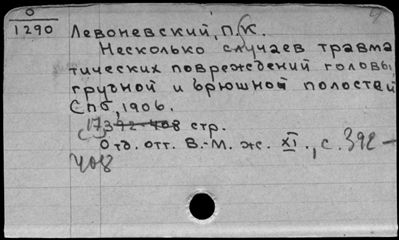 0
1290
Левоневский, П. К.
Несколько случаев травма
тических повреждений головы,
грудной и брюшной полостей
Спб, 1906.
17 стр.
Отд. отт. В.-М. ж. XI., с. 392-
408